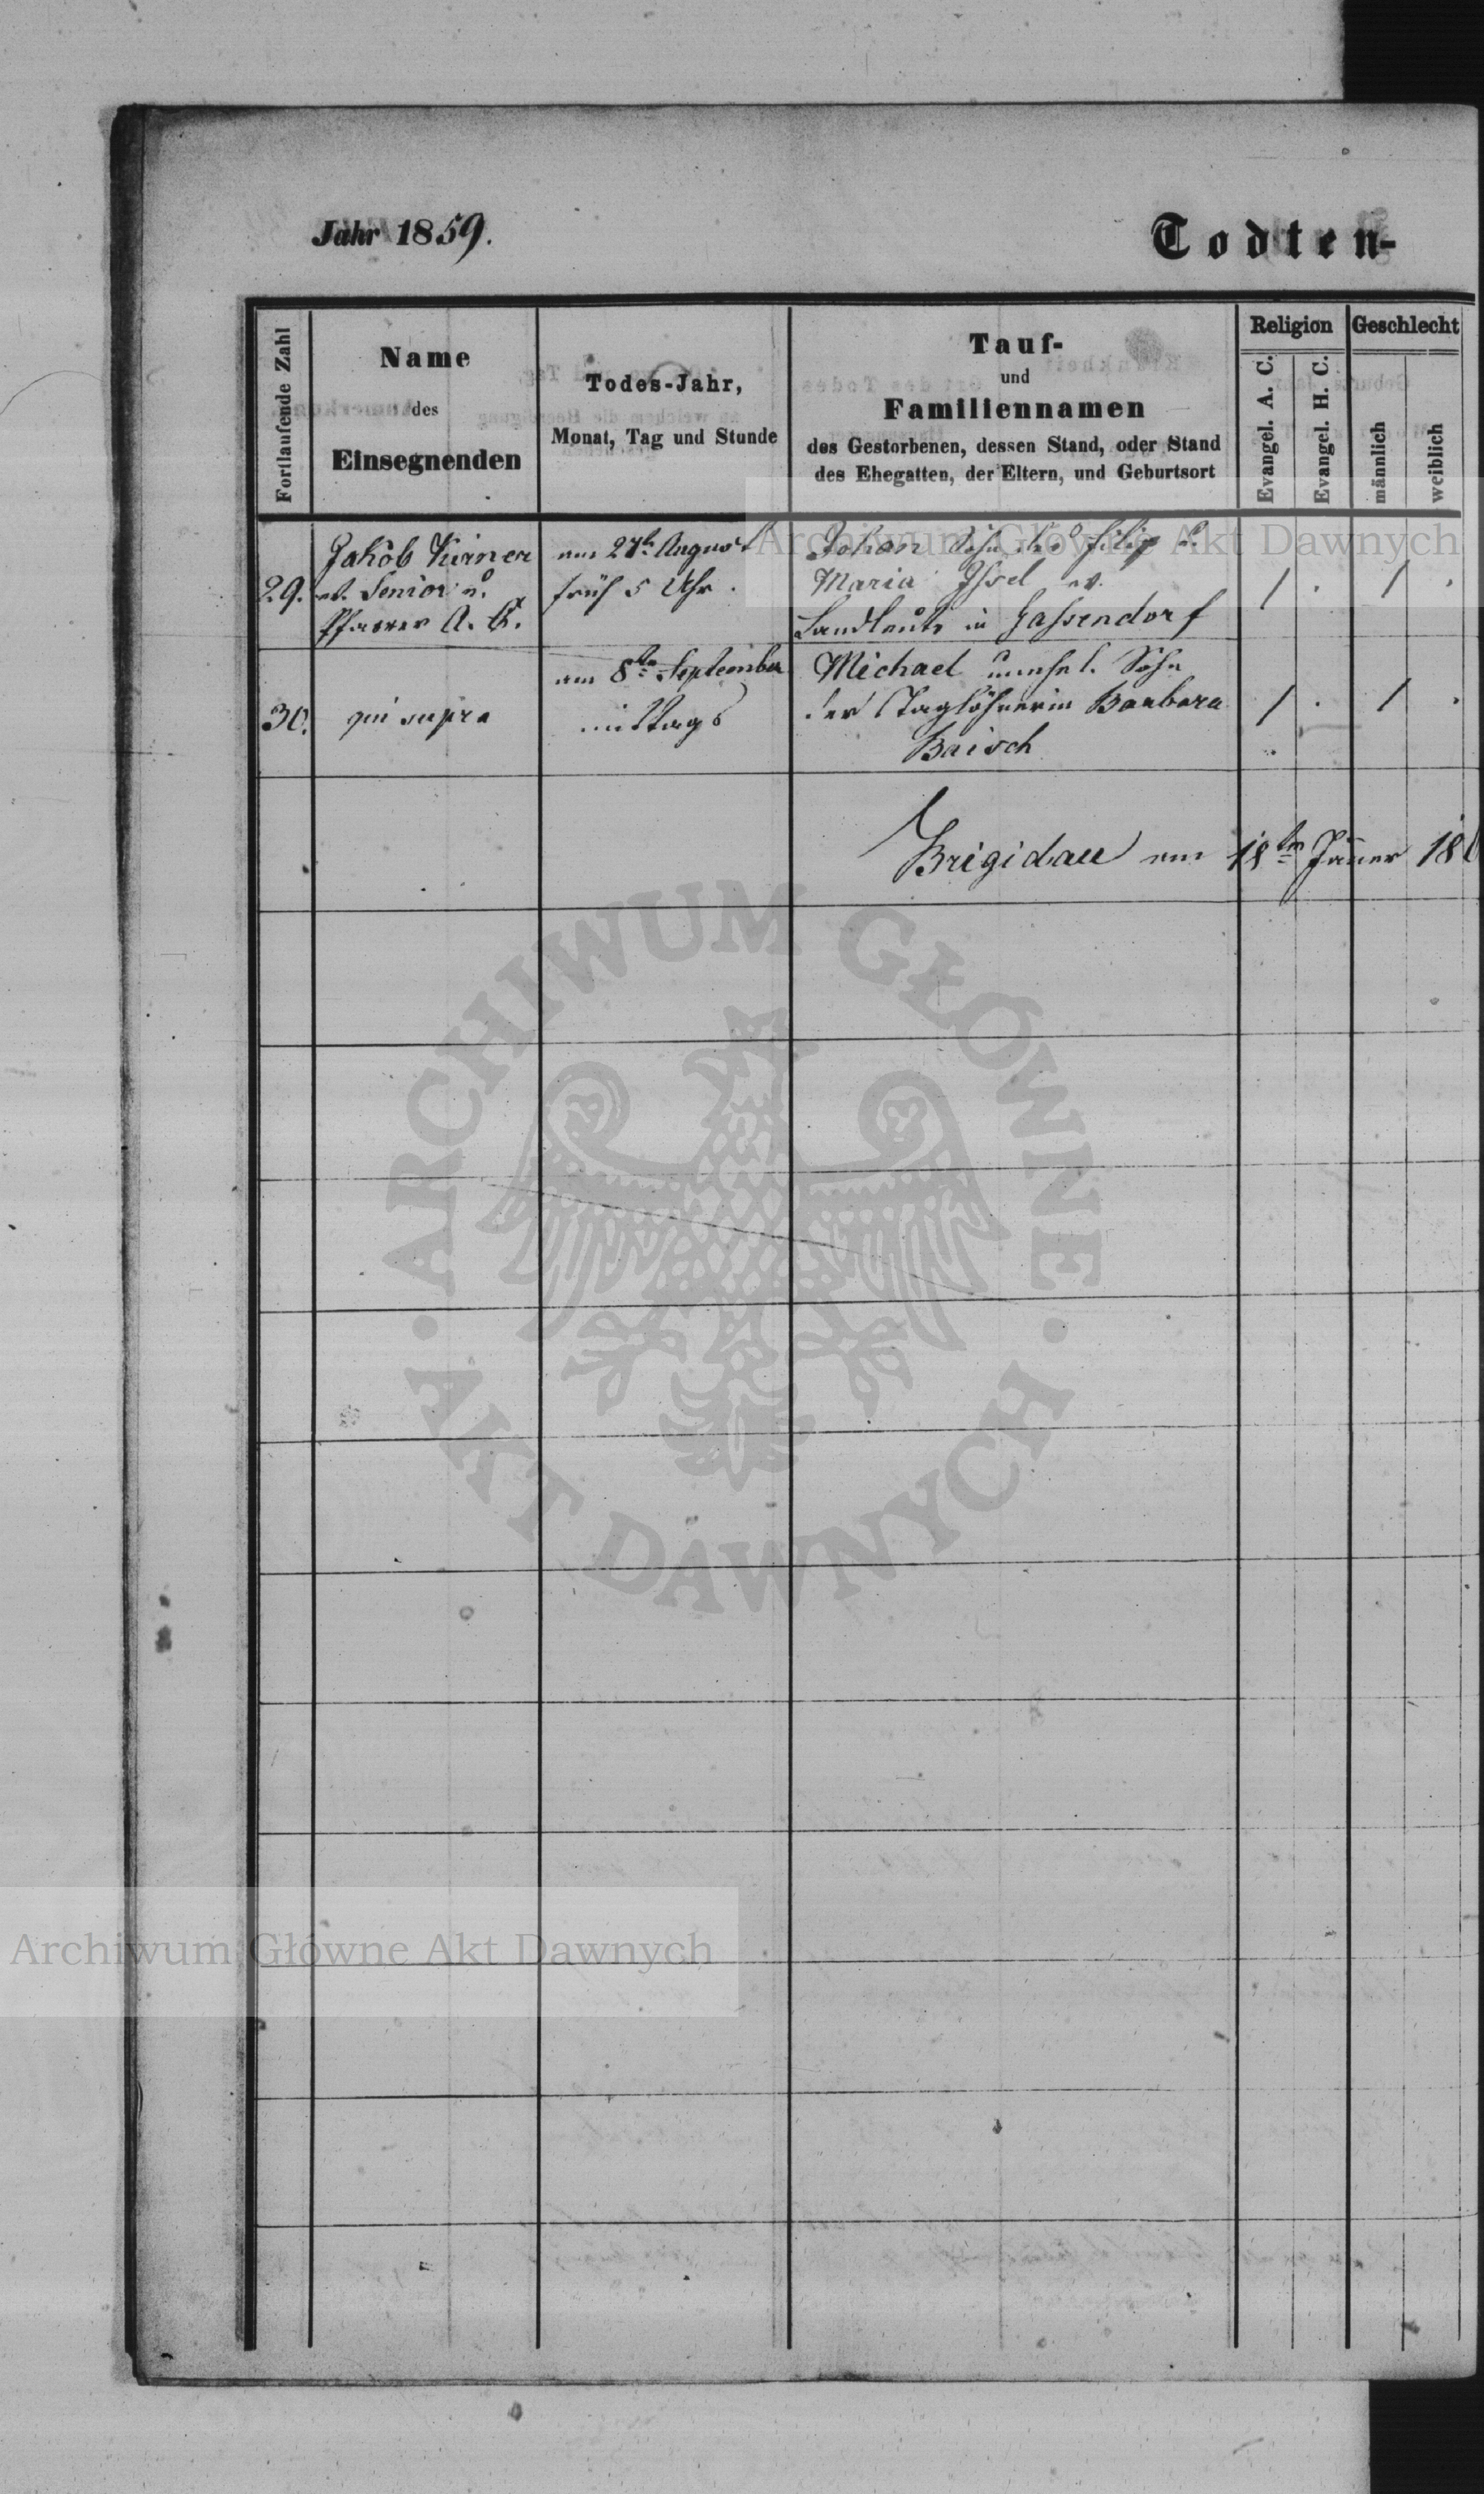 Jahr 1859.
Todten-
Fortlaufende Zahl
Name
des
Einsegnenden
Todes-Jahr,
Monat, Tag und Stunde
Tauf-
und
Familiennamen
des Gestorbenen, dessen Stand, oder Stand
des Ehegatten, der Eltern, und Geburtsort
Religion
Evangel. A. C.
Evangel. H. C.
Geschlecht
männlich
weiblich
29.
Jakob Kirner
Senior u.
Pfarrer A. C.
am 27t August
früh 5 Uhr.
Johan Sohn des Filip u.
Maria Issel
Landleute in Gassendorf
/ . / .
30.
qui supra
am 8ten September
mittags
Michael unehel. Sohn
der Taglöhnerin Barbara
Baisch
/ . / .
Brigidau am 18ten Jänner 18
Archiwum Główne Akt Dawnych
ARCHIWUM GŁÓWNE AKT DAWNYCH
Archiwum Główne Akt Dawnych